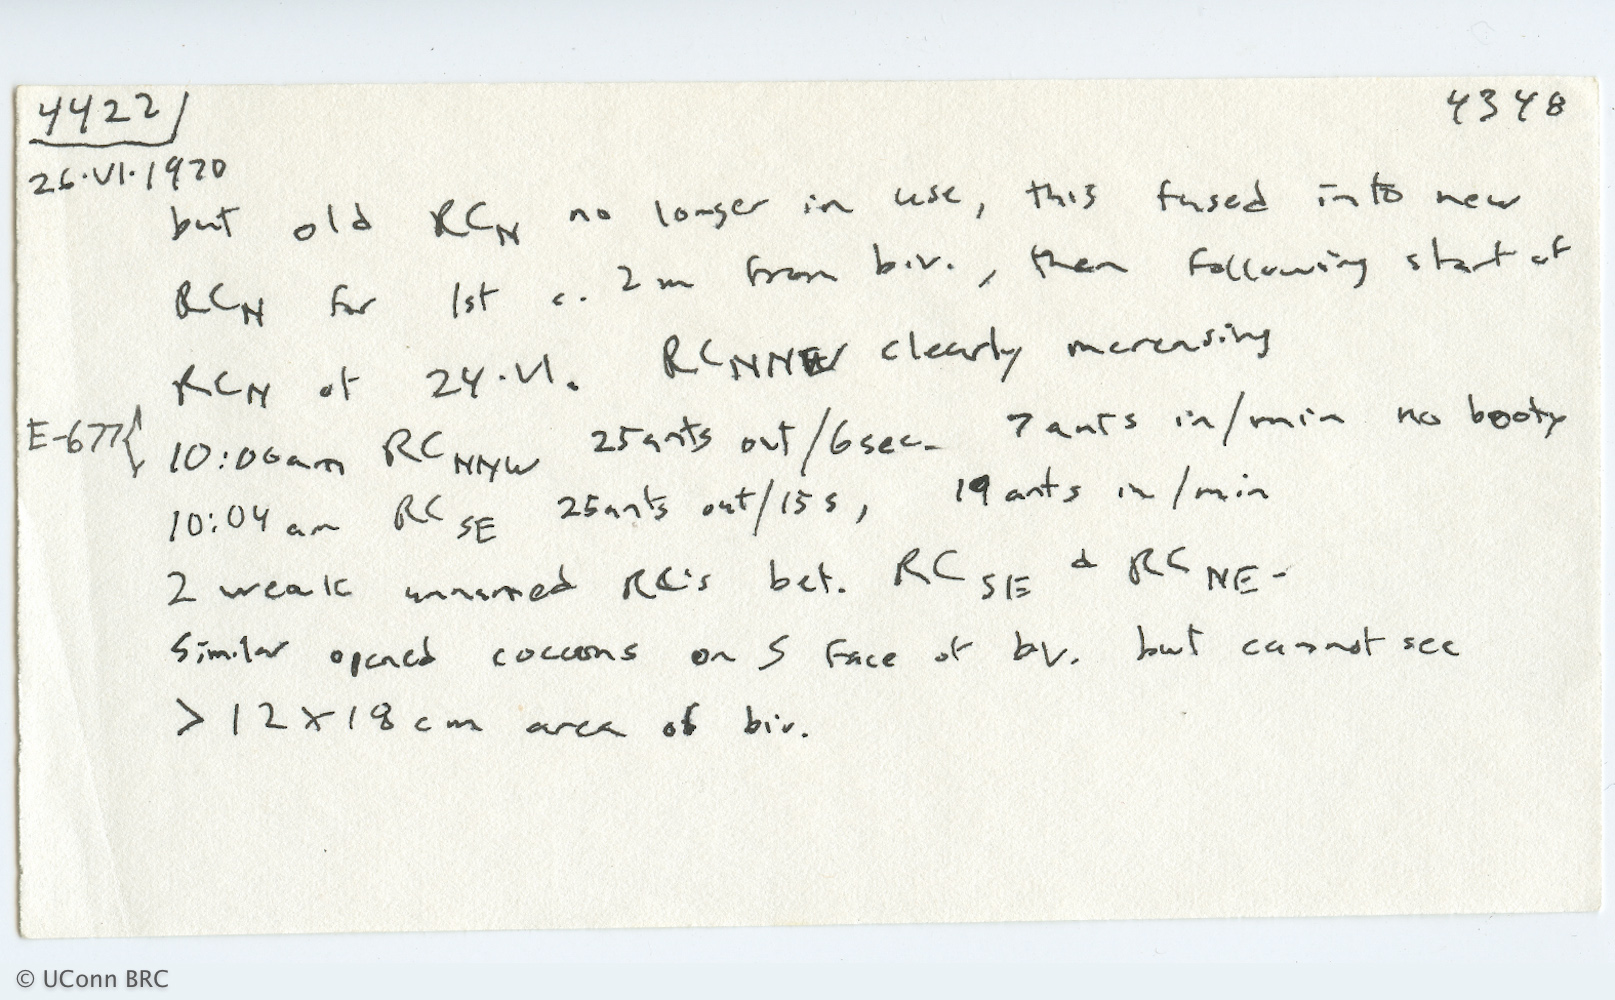 4422
4348
26.VI.1970
but old RCN no longer in use, this fused into new
RCN for 1st c. 2m from biv., then following start of
RCN of 24.VI. RCNNW clearly increasing
E-677{
10:00am RCNNW 25ants out/6sec. 7 ants in/min no booty
10:04 am RC SE 25ants out/15 s, 19 ants in/min
2 weak unnamed RC's bet. RC SE & RC NE-
Similar opened cocoons on S face of biv. but cannot see
> 12 x 18 cm area of biv.
© UConn BRC